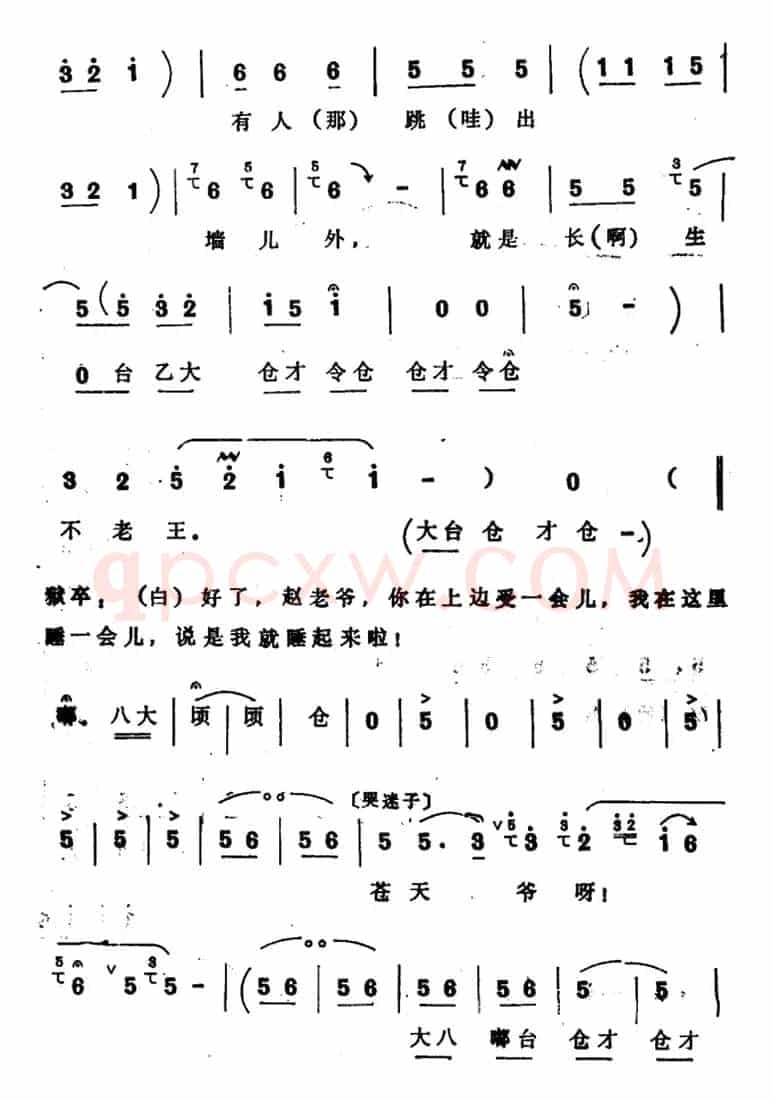 3 2 i ) | 6 6 6 | 5 5 5 | ( 1 1 1 5 |
有 人 （那） 跳 （哇） 出
3 2 1 ) | 7 6 5 6 | 5 6 - | 7 6 6 | 5 5 3 5
墙 儿 外， 就 是 长 （啊） 生
5 ( 5 3 2 | i 5 i | 0 0 | 5 - ) |
0 台 乙 大 仓 才 令 仓 仓 才 令 仓
3 2 5 2 i 6 i - ) 0 (
不 老 王。 （大 台 仓 才 仓 -）
qpcxw.COM
狱卒：（白）好了，赵老爷，你在上边受一会儿，我在这里
睡一会儿，说是我就睡起来啦！
嘟。 八 大 | 顷 | 顷 | 仓 | 0 | 5 | 0 | 5 | 0 | 5 |
5 | 5 | 5 | 5 6 | 5 6 | 5 5 . 3 5 3 3 2 3 2 i 6
〔哭迷子〕
苍 天 爷 呀！
5 6 5 3 5 - | ( 5 6 | 5 6 | 5 6 | 5 6 | 5 | 5 |
大 八 嘟 台 仓 才 仓 才